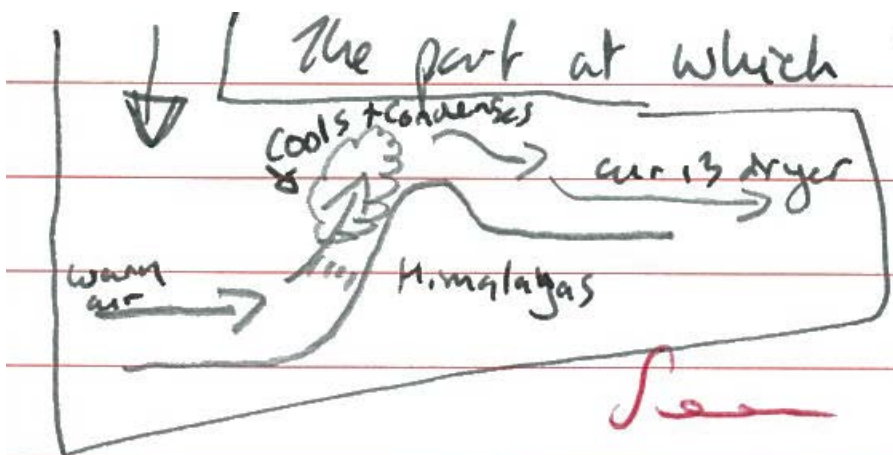 The part at which
Cools + Condenses
air is dryer
warm
air
Himalayas
Seen